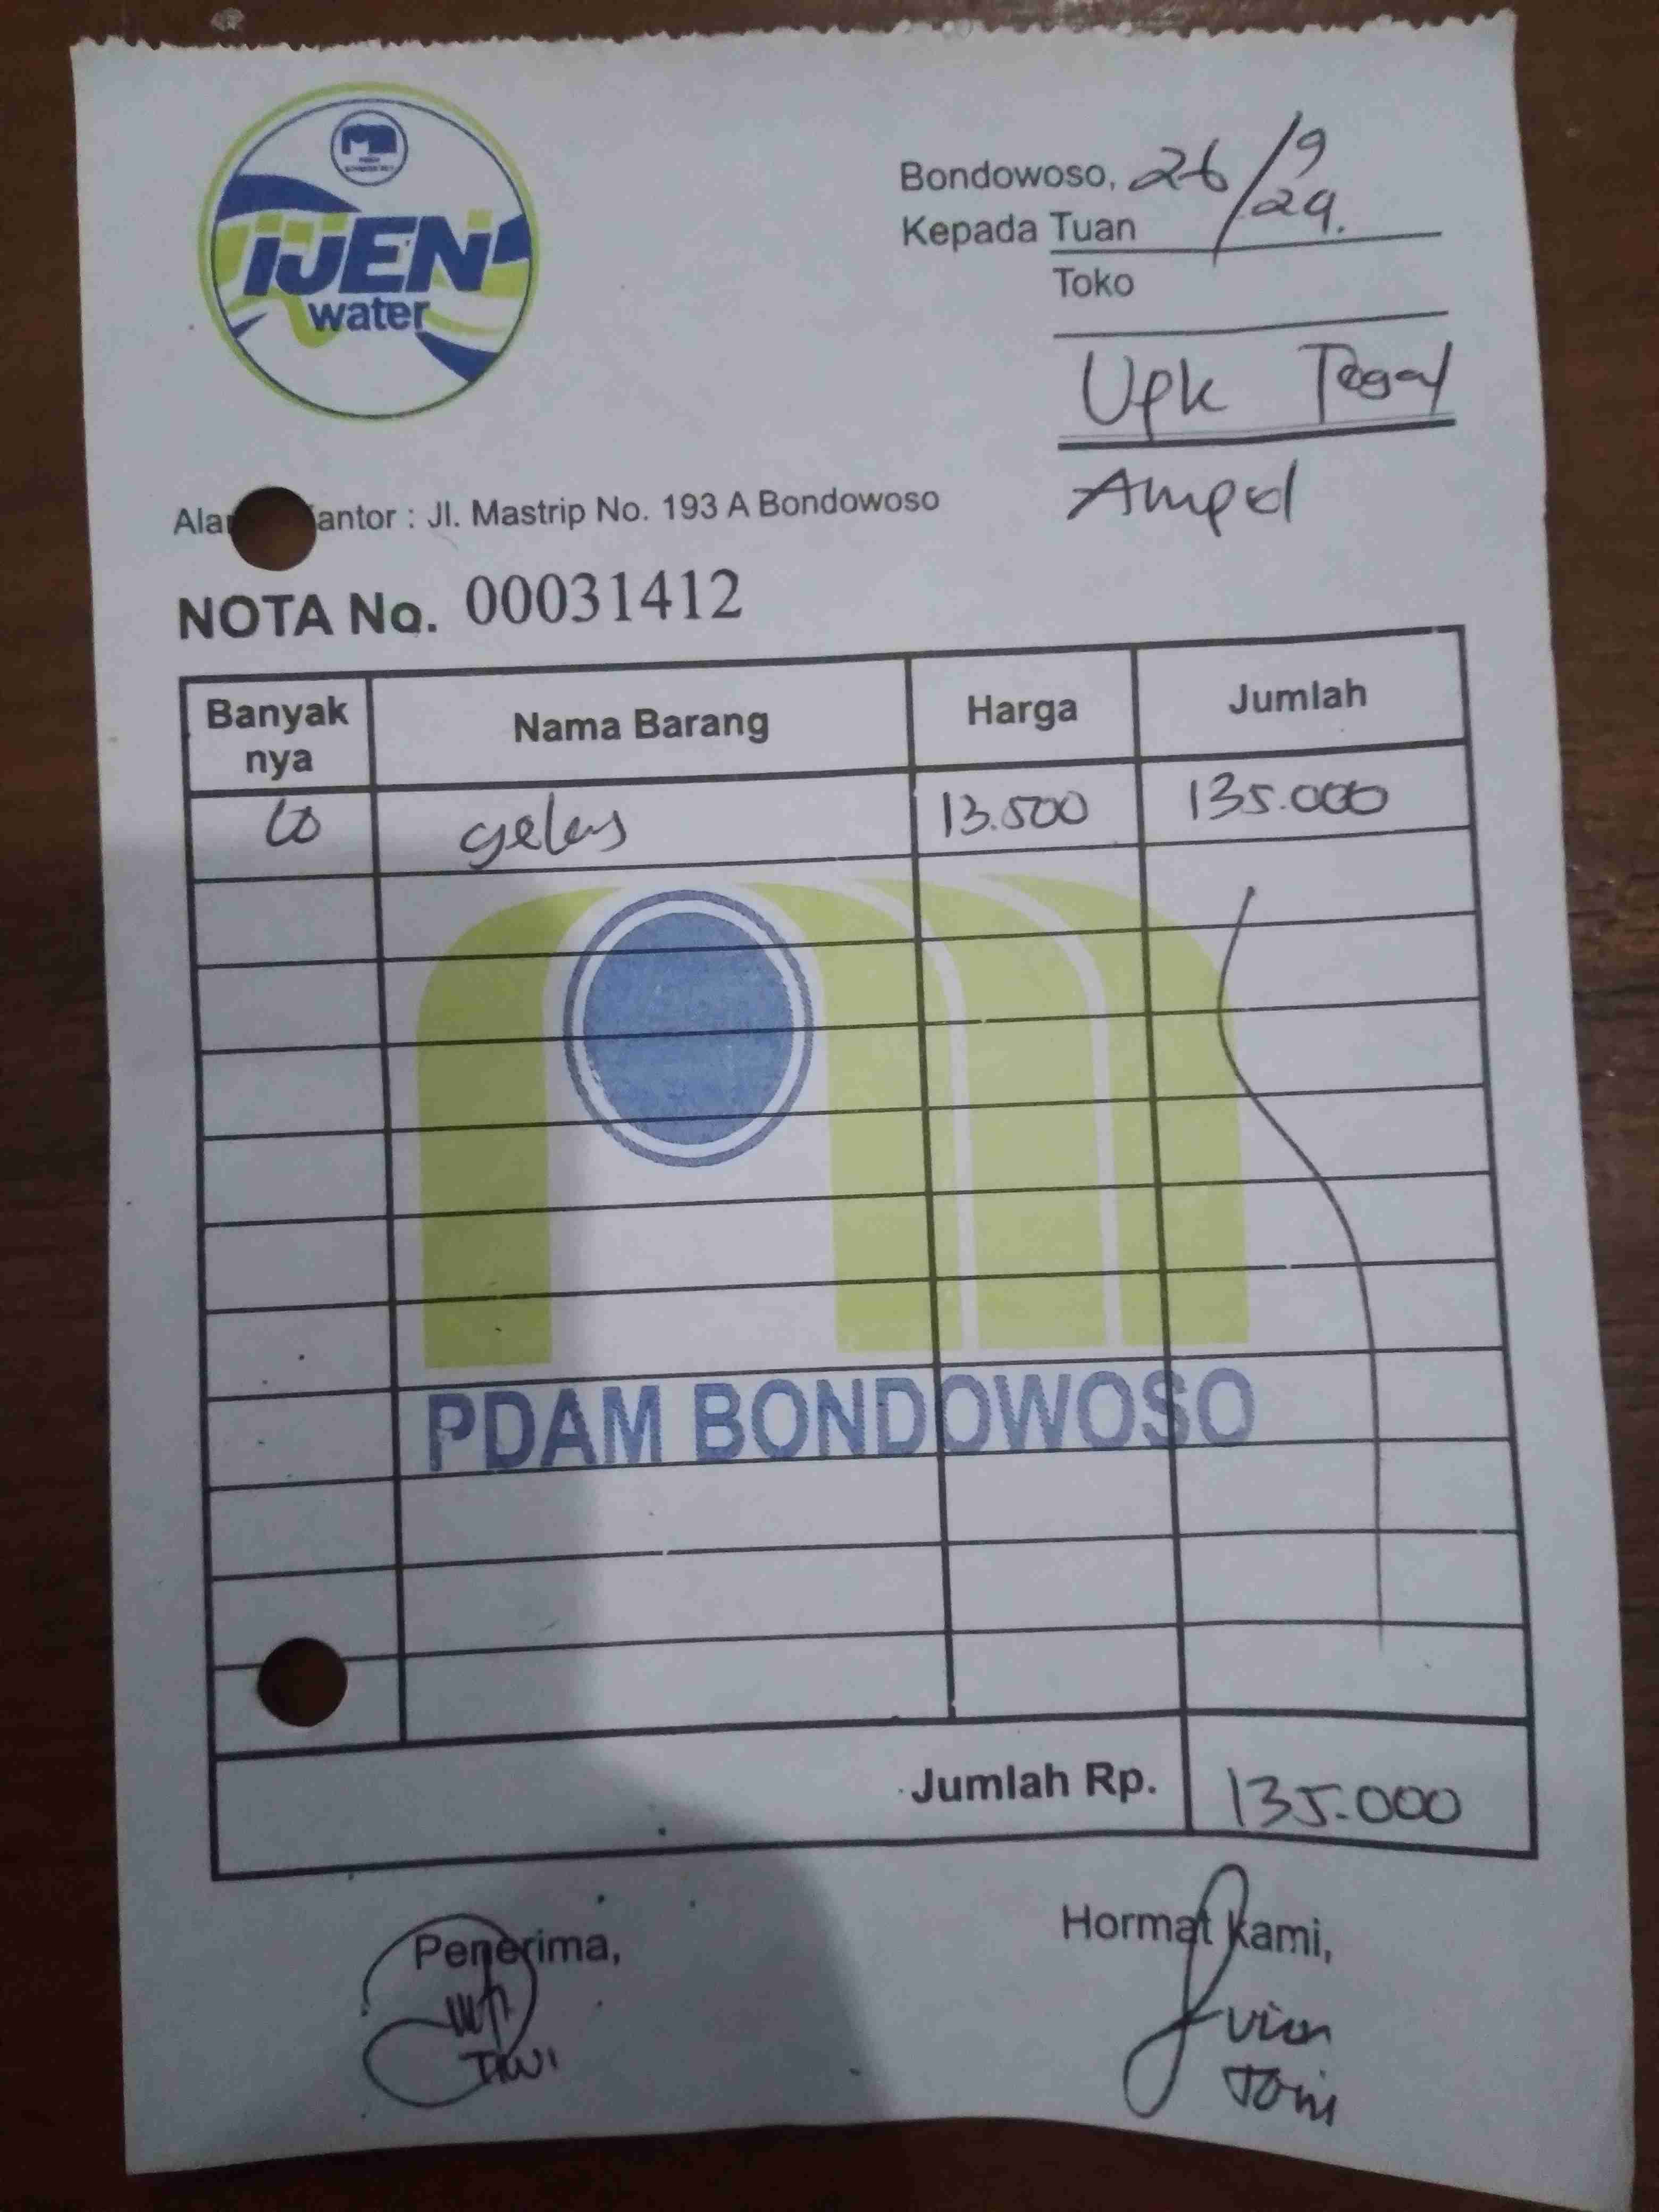 IJEN
water
Bondowoso, 26/9/24.
Kepada Tuan
Toko
Upk Tegal
Ampel
Kantor : Jl. Mastrip No. 193 A Bondowoso
NOTA No. 00031412
Banyak nya Nama Barang Harga Jumlah
10 gelas 13.500 135.000
PDAM BONDOWOSO
Jumlah Rp. 135.000
Penerima, Hormat kami,
vian
Toni